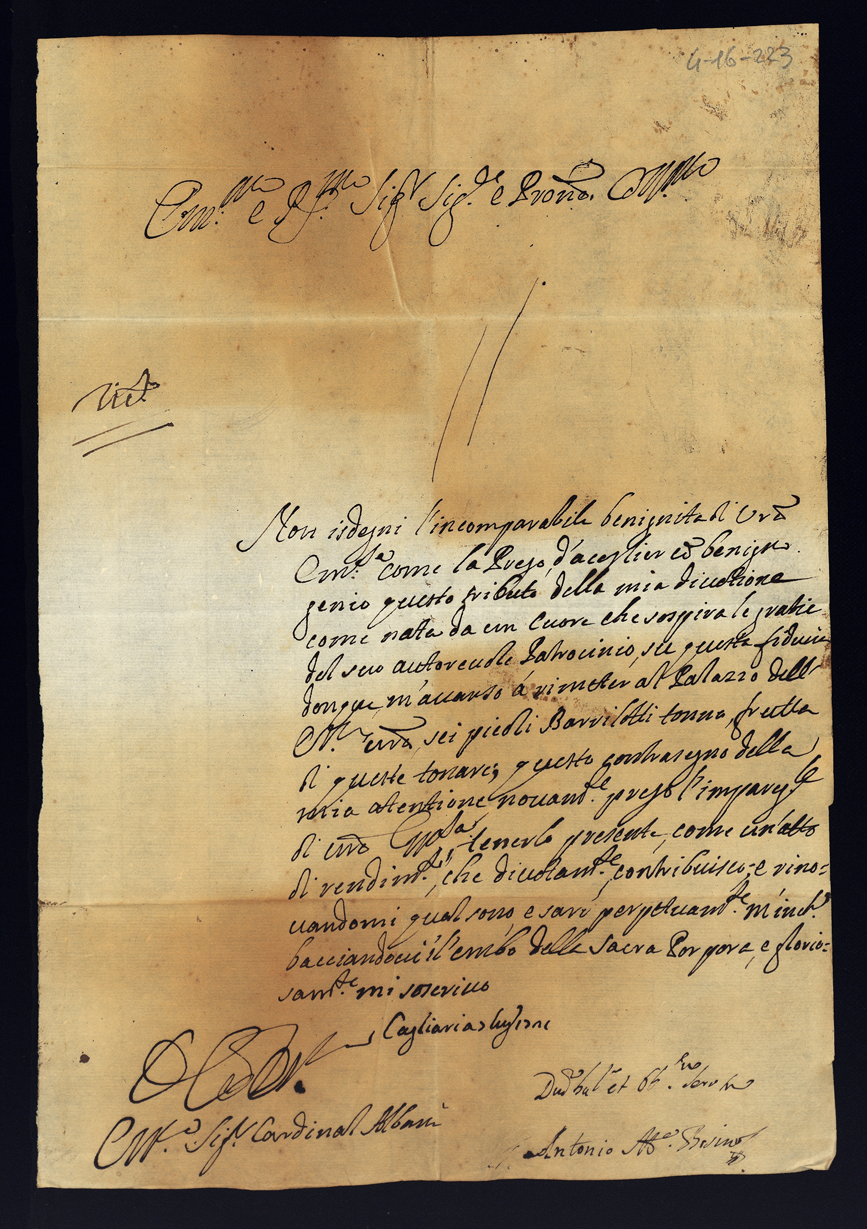 4-16-223
Em.mo e R.mo Sig.r Sig.re e Prone. Col.mo
Non isdegni l'incomparabile benignità di Vrã
Em.za come la Prego, d'acoglier cõ benigno
genio questo tributo della mia divotione
come nata da un Cuore che sospira le gratie
del suo autorevole Patrocinio, su questa fiducia
donque m'avanso á rimeter al Palazzo dell'
vrã, sei picoli Barrilotti tonna, frutta
di queste tonare; questo contrasegno della
mia atentione novam.te prego l'impareg.le
di vrã tenerlo presente, come un'atto
di rendim.to, che divotam.te contribuisco; e rino=
vandomi qual sono e saró perpetuam.te m'inch.o
bacciandovi il lembo della Sacra Porpora, e glorio=
sam.te mi soscrivo
Cagliari
Em.o Sig.r Cardinal Albani
Antonio